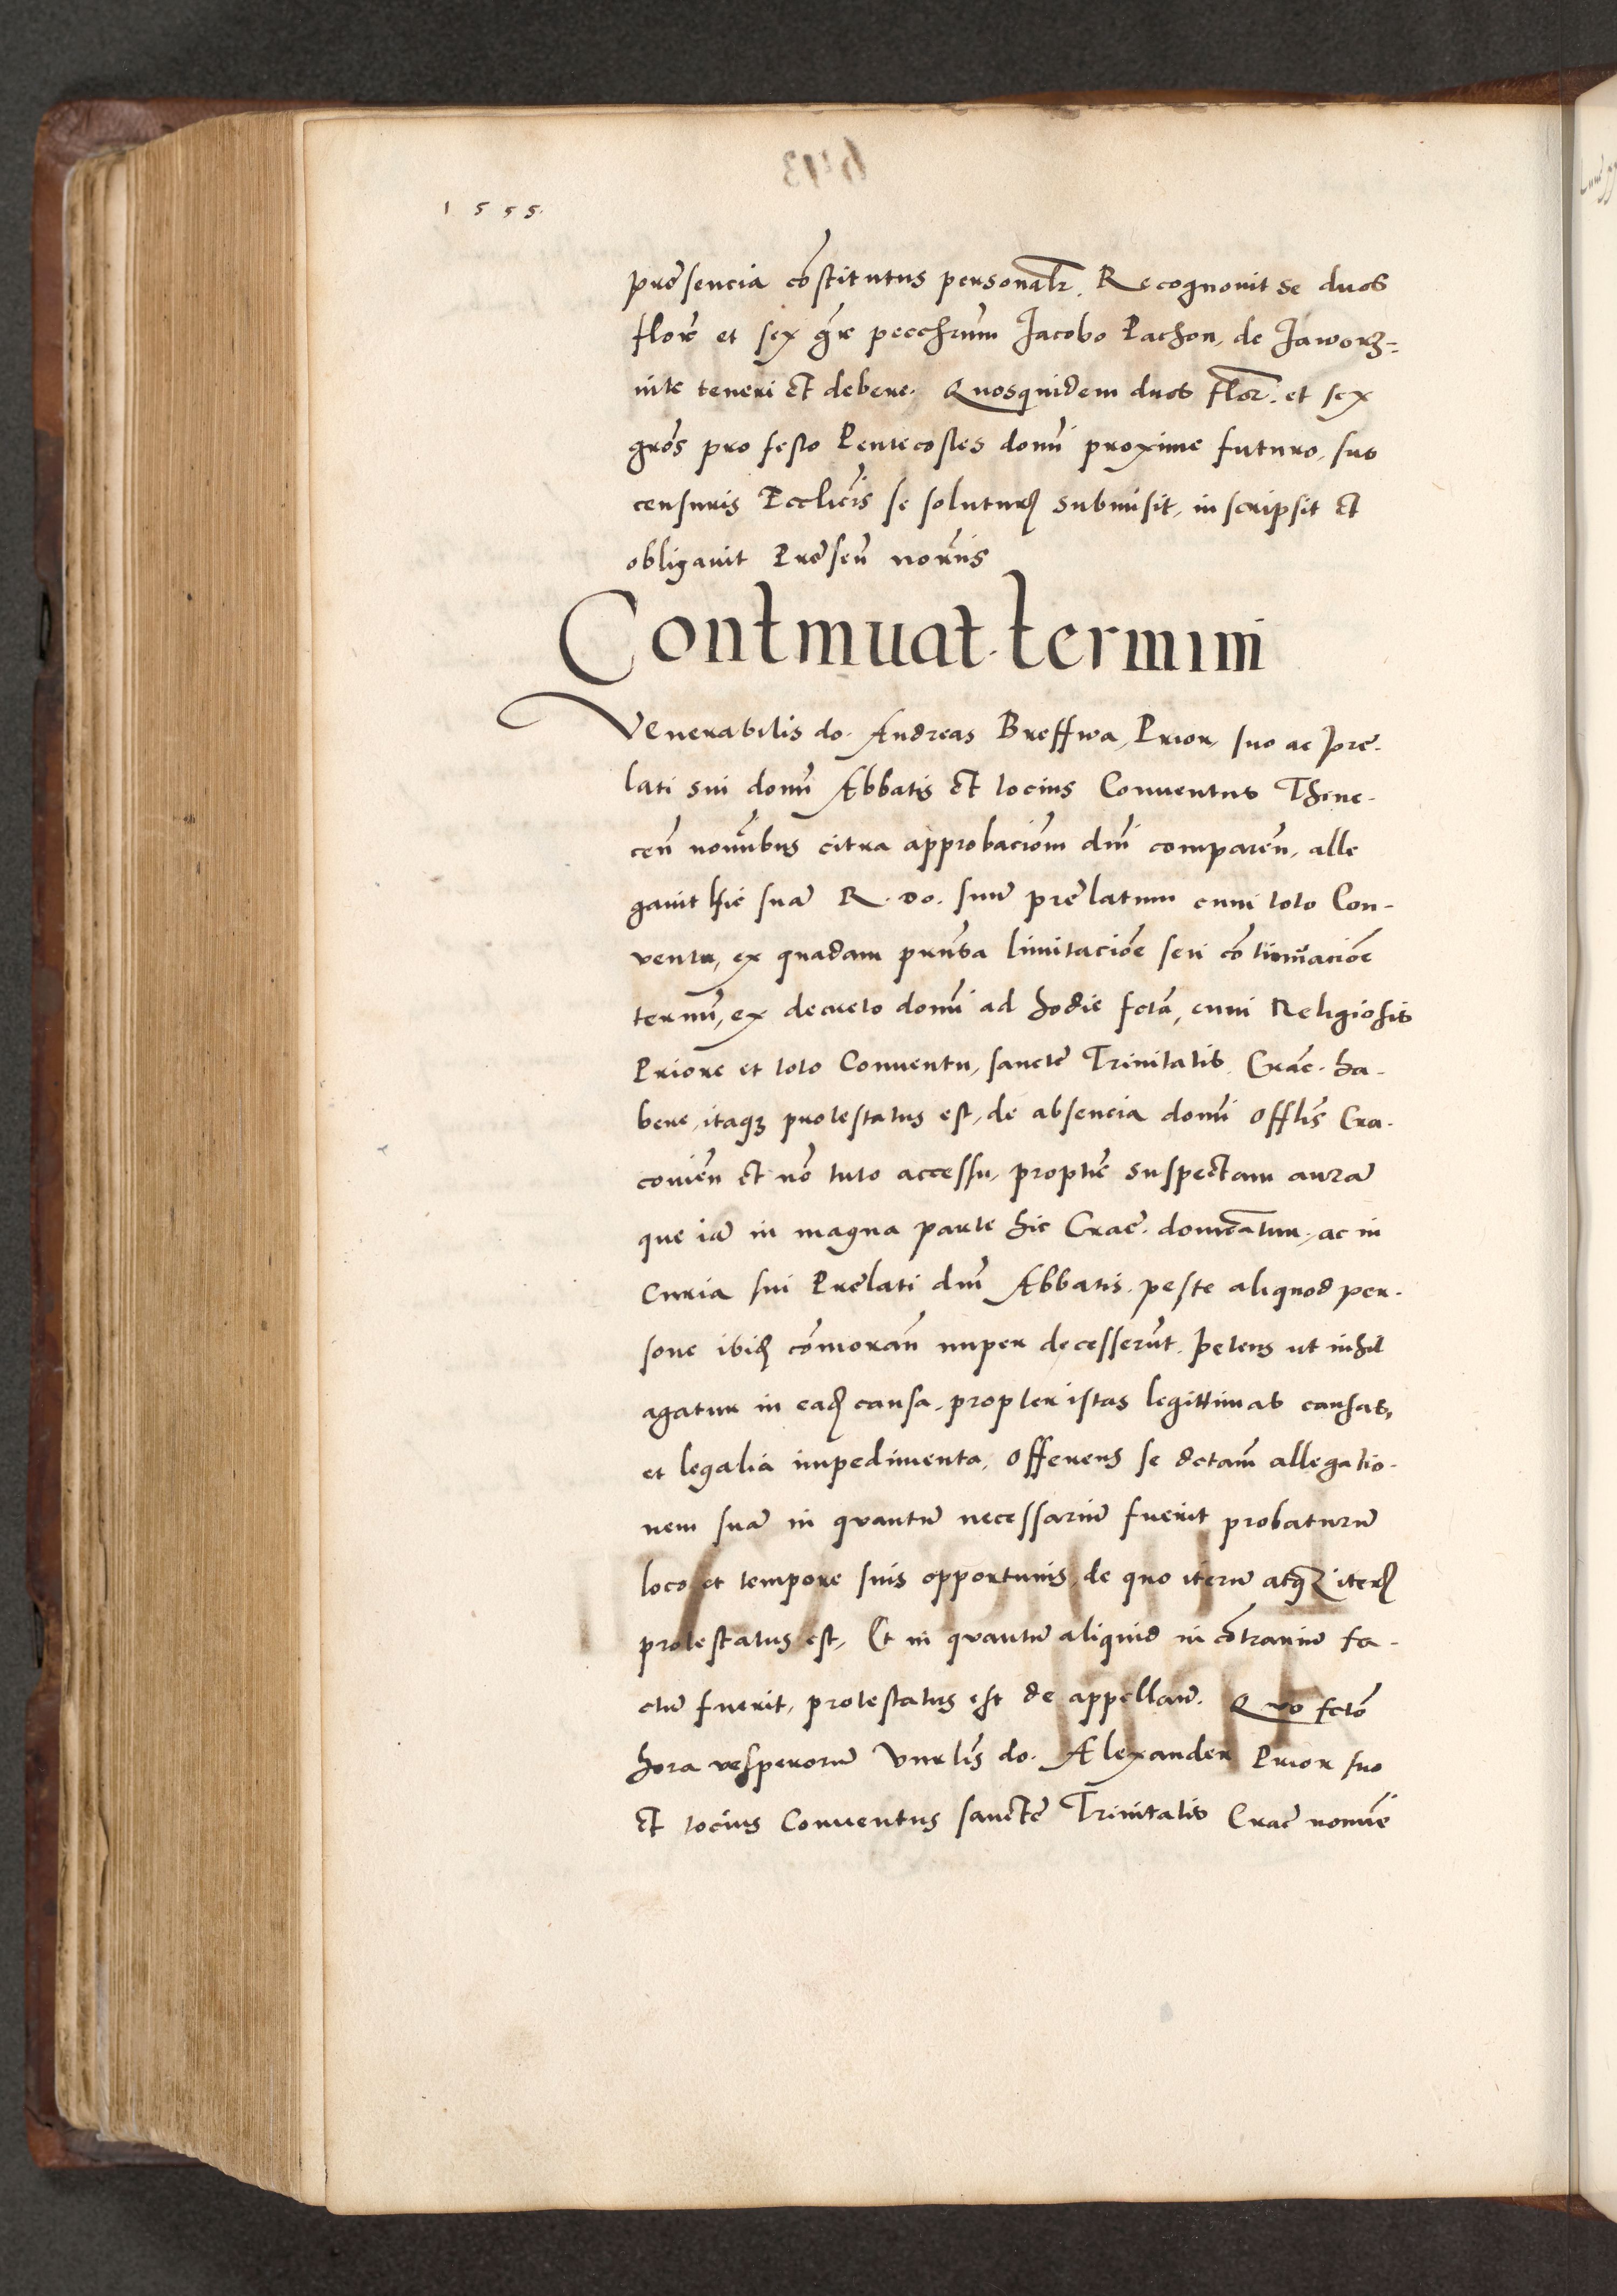 1555.
presencia cōstitutus personalr. Recognovit se duos
florē et sex gr̄ pecchrum Jacobo Pachon, de Jaworz=
nik teneri et debere. Quosquidem duos flor. et sex
gros̄ pro festo Pentecostes domī proxime futuro, sub
censuris Ecclicis̄ se soluturū submisit, inscripsit et
obligavit Presen̄ norīis
Continuat. termini
Venerabilis do. Andreas Breffwa, Prior, suo ac pre-
lati sui domī Abbatis et tocius Conventus Thine-
cen̄ nominibus citra approbaciōm dnī comparen̄, alle
gavit hic suā R. do. suum prelatum cum toto Con-
ventu, ex quadam prn̄sa limitaciōe seu cōtinuaciōe
termī, ex decreto domī ad hodie fctā, cum Religiosis
Priore et toto Conventu, sancte Trinitatis Crac. ha-
bere, itaqz protestatus est, de absencia domī Offlīs Cra-
covien̄ et nō tuto accessu, propter suspectam aurā
que iā in magna parte hic Crac. domīatur, ac in
Curia sui Prelati dnī Abbatis. peste aliquod per-
sone ibidē cōmoran̄ nuper decesserūt. petens ut nihil
agatur in eadē causa, propter istas legittimas causas,
et legalia impedimenta, offerens se dctam̄ allegatio-
nem suā in quantū necessariū fuerit probaturū
loco et tempore suis opportunis, de quo iterū atqz iterū
protestatus est, Et in quantū aliquid in cōtrariū fa-
ctū fuerit, protestatus est de appelland. Quo fctō
hora vesperorū Vnrlīs do. Alexander Prior suo
et tocius Conventus sancte Trinitatis Crac nomīe